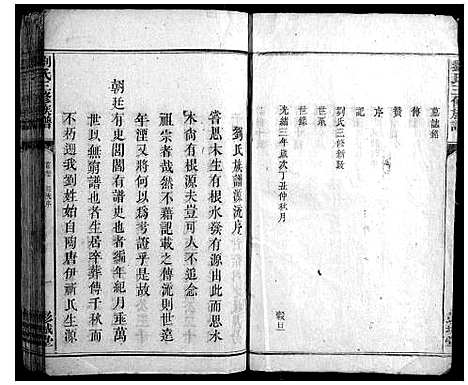 墓誌銘
傳
贊
序
記
劉氏三修新敘
世承
光緒三年歲次丁丑仲秋月 穀旦
劉氏族譜源流序
嘗思木生有根水發有源由此而思水
木尚有根源人可不追念
祖宗者哉然不藉記載之傳流則世遠
年湮又將何以為考證乎是故
朝廷有史閭閻有譜史也者編年紀月垂萬
世以無窮譜也者生居卒葬傳千秋而
不朽迺我劉姓始自陶唐伊祈氏生源
劉氏三修族譜
彭城堂